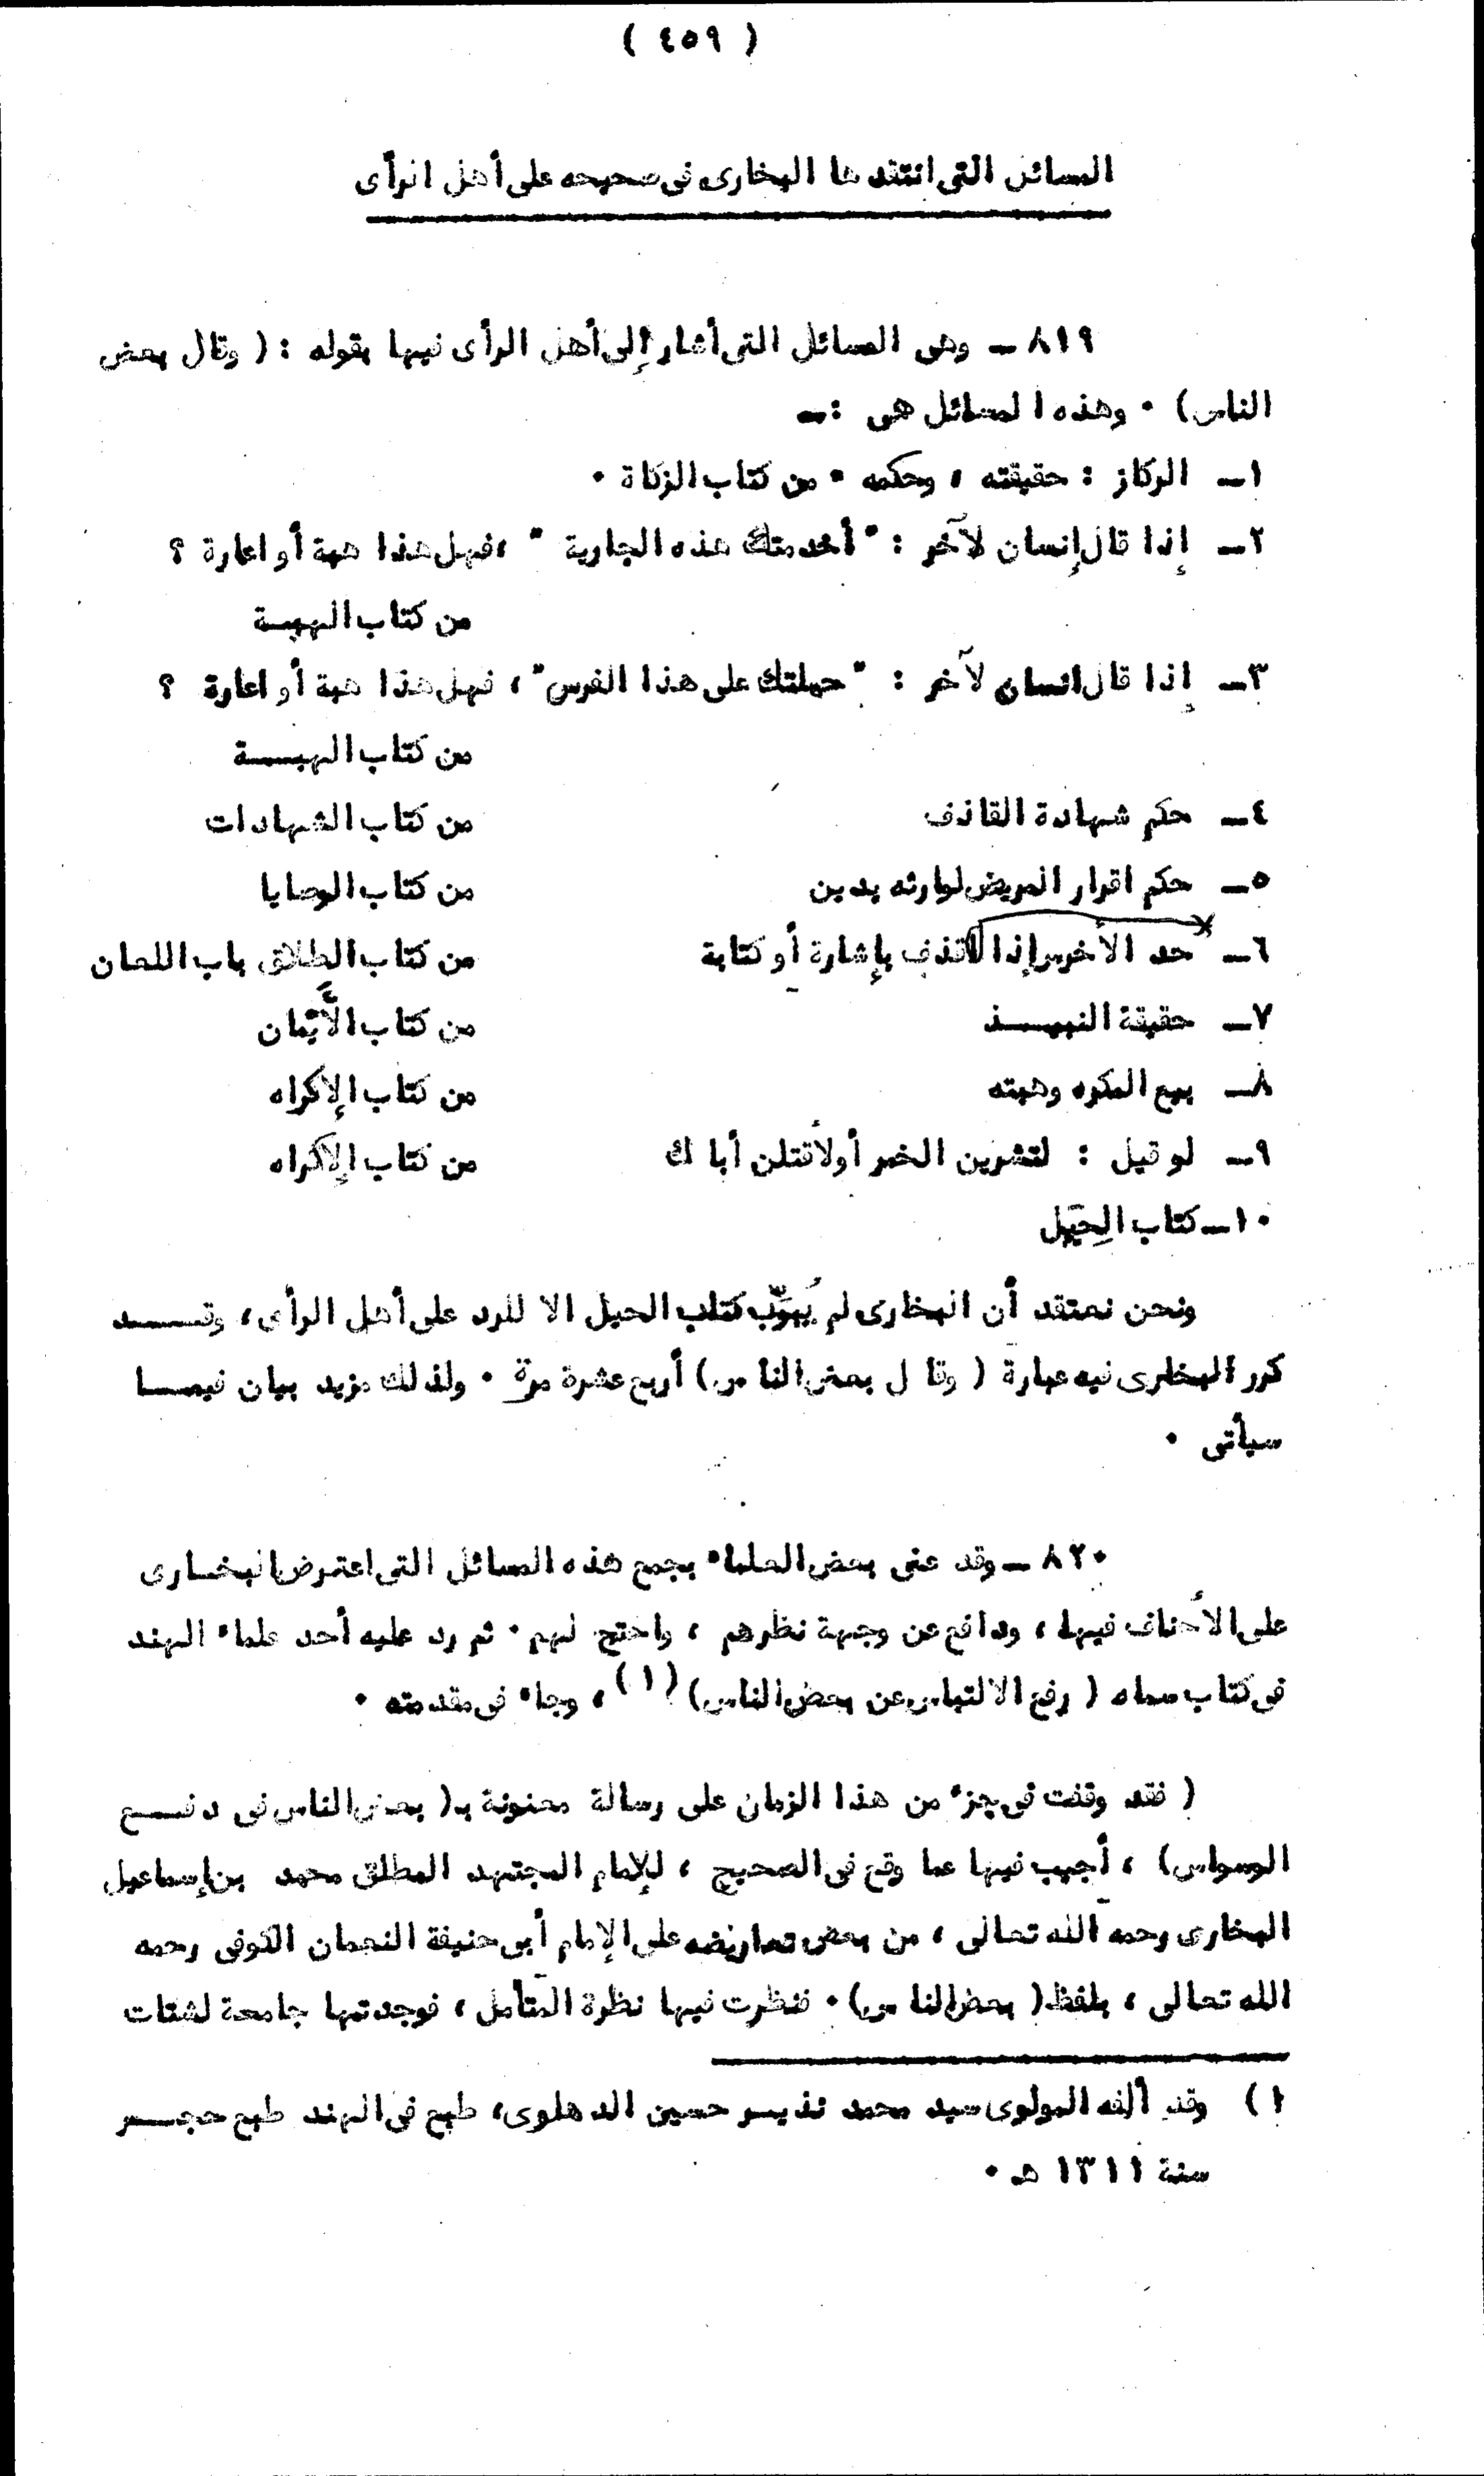 ( ٤٥٩ )
المسائل التى انتقدها البخارى فى صحيحه على أهل الرأى
٨١٩ ــ وهى المسائل التى أشار إلى أهل الرأى فيها بقوله : ( وقال بعض
الناس ) ٠ وهذه المسائل هى :ــ
١ــ الركاز : حقيقته ، وحكمه ٠ من كتاب الزكاة ٠
٢ــ إذا قال إنسان لآخر : " أخدمتك هذه الجارية " ، فهل هذا هبة أو اعارة ؟
من كتاب الهبـة
٣ــ إذا قال انسان لآخر : " حملتك على هذا الفرس" ، فهل هذا هبة أو اعارة ؟
من كتاب الهبــة
٤ــ حكم شهادة القاذف من كتاب الشهادات
٥ــ حكم اقرار المريض لوارثه بدين من كتاب الوصايا
٦ــ حد الأخرس إذا قذف بإشارة أو كتابة من كتاب الطلاق باب اللعان
٧ــ حقيقة النبيــذ من كتاب الأَيْمان
٨ــ بيع المكره وهبته من كتاب الإكراه
٩ــ لو قيل : لتشربن الخمر أو لأقتلن أباك من كتاب الإكراه
١٠ــ كتاب الحِيَل
ونحن نعتقد أن البخارى لم يُبوِّب كتاب الحيل الا للرد على أهل الرأى ، وقــــد
كرر البخارى فيه عبارة ( وقال بعض الناس ) أربع عشرة مرة ٠ ولذلك مزيد بيان فيمــا
سيأتى ٠
٨٢٠ ــ وقد عنى بعض العلماء بجمع هذه المسائل التى اعترض البخـارى
على الأحناف فيها ، ودافع عن وجهة نظرهم ، واحتج لهم ٠ ثم رد عليه أحد علماء الهند
فى كتاب سماه ( رفع الالتباس عن بعض الناس ) (١) ، وجاء فى مقدمته ٠
( فقد وقفت فى جزء من هذا الزمان على رسالة معنونة بـ ( بعض الناس فى دفــع
الوسواس ) ، أجيب فيها عما وقع فى الصحيح ، للإمام المجتهد المطلق محمد بن إسماعيل
البخارى رحمه الله تعالى ، من بعض تعاريضه على الإمام أبى حنيفة النعمان الكوفى رحمه
الله تعالى ، بلفظ ( بعض الناس ) ٠ فنظرت فيها نظرة المتأمل ، فوجدتها جامعة لشتات
١ ) وقد ألفه المولوى سيد محمد نذيـر حسين الدهلوى ، طبع فى الهند طبع حجــر
سنة ١٣١١ هـ ٠